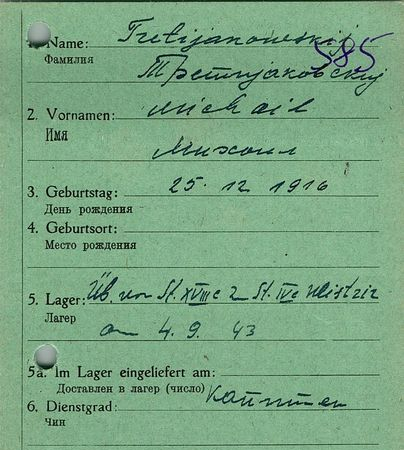 1. Name: Tretijakowskij 585
Фамилия Третьяковский
2. Vornamen: Michail
Имя
Михаил
3. Geburtstag: 25. 12 1916
День рождения
4. Geburtsort:
Место рождения
5. Lager: Üb. von St. XVIII C z St. IV C
Лагер am 4. 9. 43
5a. Im Lager eingeliefert am:
Доставлен в лагер (число)
6. Dienstgrad:
Чин